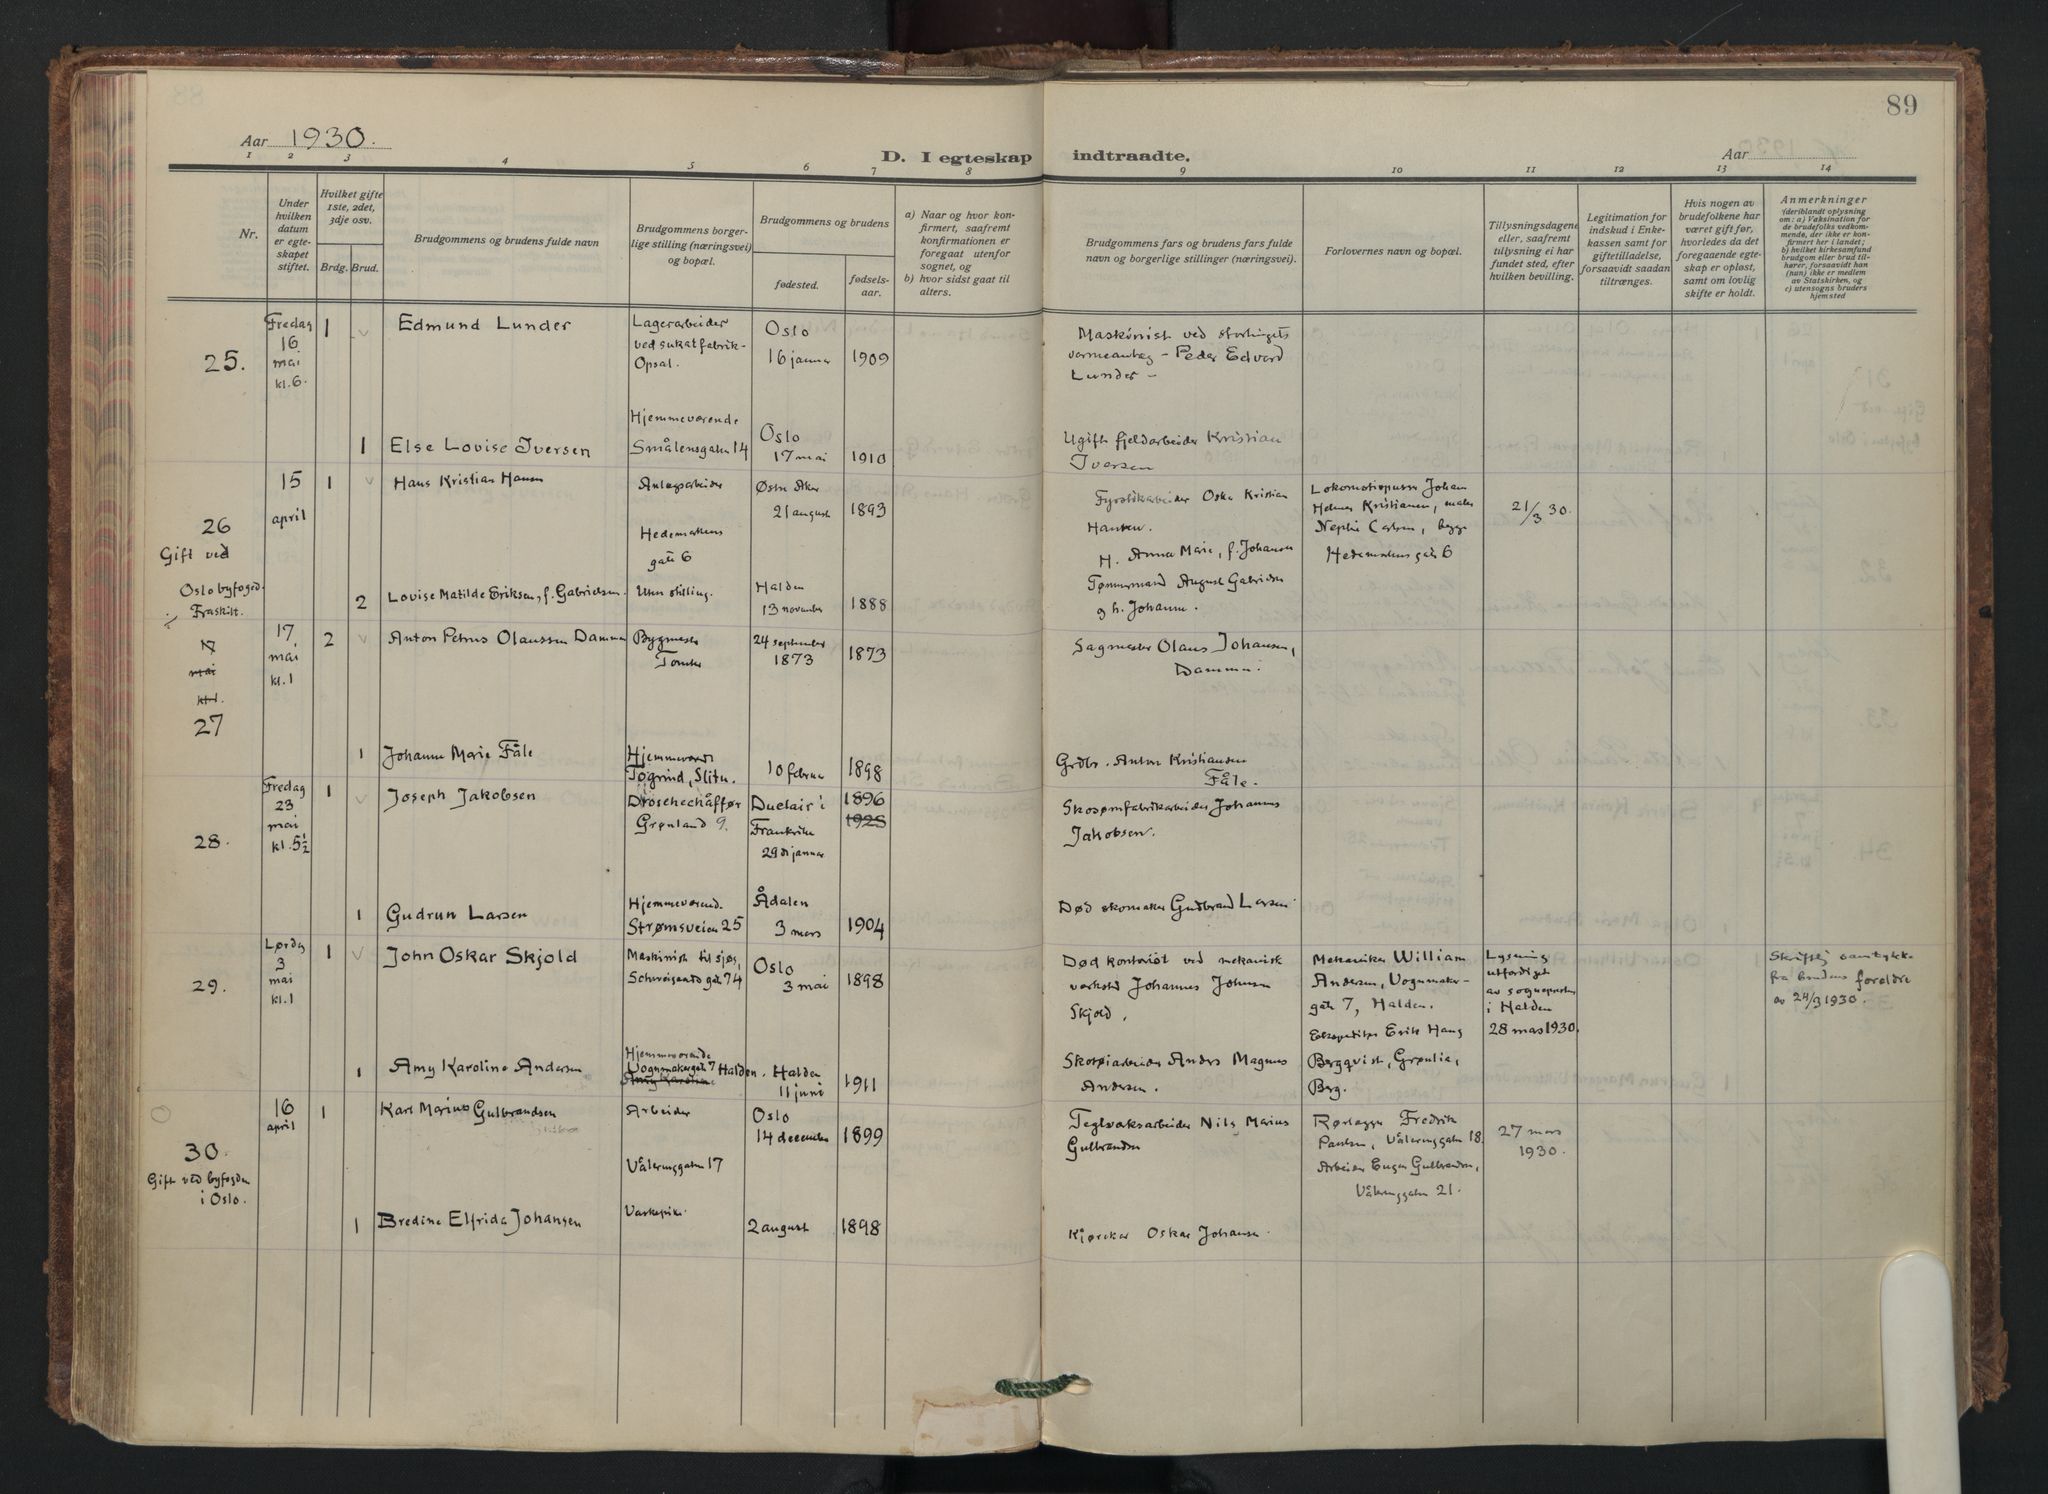 89
Aar 1930.
D. I egteskap indtraadte.
Aar
1 2 3 4 5 6 7 8 9 10 11 12 13 14
Nr.
Under hvilken datum er egteskapet stiftet.
Hvilket gifte 1ste, 2det, 3dje osv.
Brdg. Brud.
Brudgommens og brudens fulde navn
Brudgommens borgerlige stilling (næringsvei) og bopæl.
Brudgommens og brudens
fødested.
fødselsaar.
a) Naar og hvor konfirmert, saafremt konfirmationen er foregaat utenfor sognet, og
b) hvor sidst gaat til alters.
Brudgommens fars og brudens fars fulde navn og borgerlige stillinger (næringsvei).
Forlovernes navn og bopæl.
Tillysningsdagene eller, saafremt tillysning ei har fundet sted, efter hvilken bevilling.
Legitimation for indskud i Enkekassen samt for giftetilladelse, forsaavidt saadan tiltrænges.
Hvis nogen av brudefolkene har været gift før, hvorledes da det foregaaende egteskap er opløst, samt om lovlig skifte er holdt.
Anmerkninger
(deriblandt oplysning om: a) Vaksination for de brudefolks vedkommende, der ikke er konfirmert her i landet; b) hvilket kirkesamfund brudgom eller brud tilhører, forsaavidt han (hun) ikke er medlem av Statskirken, og c) utensogns bruders hjemsted
25.
Fredag 16 mai kl. 6.
1
Edmund Lunder
Lagerarbeider ved sukatfabrik - Opsal.
Oslo 16 januar
1909
Maskinist ved stortingets varmeanlæg - Peder Edvard Lunder -
1
Else Lovise Iversen
Hjemmeværende Smålensgaten 14
Oslo 17 mai
1910
Ugift fjeldarbeider Kristian Iversen
26
Gift ved Oslo byfoged
Fraskilt.
15 april
1
Hans Kristian Hansen
Anlegsarbeider Hedemarkens gate 6
Østre Aker 21 august
1893
Fyrstikarbeider Oskar Kristian Hansen.
H. Anna Marie, f. Johansen
Lokomotivpusser Johan Helmer Kristiansen, maler Carlsen, begge Hedemarkens gate 6
21/3 30.
2
Lovise Matilde Eriksen, f. Gabrielsen.
Uten stilling.
Halden 13 november
1888
Tømmermand August Gabrielsen og h. Johanne.
17 mai kl. 1
27
17 mai kl. 1
2
Anton Petrus Olaussen Dammen
Bygmester Tomter
24 september 1873
1873
Sagmester Olaus Johansen, Dammen.
1
Johanne Marie Fåle
Hjemmeværende Togrind, Slitu.
10 februar
1898
Grdbr. Anton Kristiansen Fåle.
28.
Fredag 23 mai kl. 5½
1
Joseph Jakobsen
Droschechåffør Grønland 9.
Duclair i Frankrike 29 januar
1896
1928
Skosømfabrikarbeider Johannes Jakobsen.
1
Gudrun Larsen
Hjemmeværend. Strømsveien 25
Ådalen 3 mars
1904
Død skomaker Gudbrand Larsen
29.
Lørdag 3 mai kl. 1
1
John Oskar Skjold
Maskinist til sjøs, Schweigaards gate 74
Oslo 3 mai
1898
Død kontorist ved mekanisk verksted Johannes Johnsen Skjold.
Mekaniker William Andersen, Vognmakergate 7, Halden.
Ekspeditør Erik Haug Bergqvist, Grønlia, Berg.
Lysning utferdiget av sognepresten i Halden 28 mars 1930.
Skriftlig samtykke fra brudens foreldre av 24/3 1930.
1
Amy Karoline Andersen
Hjemmeværende Vognmakergate 7 Halden.
Amy Karoline
Halden 11 juni
1911
Skotøiarbeider Anders Magnus Andersen.
30.
Gift ved byfogden i Oslo.
16 april
1
Karl Marius Gulbrandsen
Arbeider
Vålerenggaten 17
Oslo 14 december
1899
Teglverksarbeider Nils Marius Gulbrandsen
Rørlegger Fredrik Paulsen, Vålerenggaten 18.
Arbeider Eugen Gulbrandsen, Vålerenggaten 21.
27 mars 1930.
1
Bredine Elfrida Johansen
Vaskepike
2 august
1898
Kjørekar Oskar Johansen.